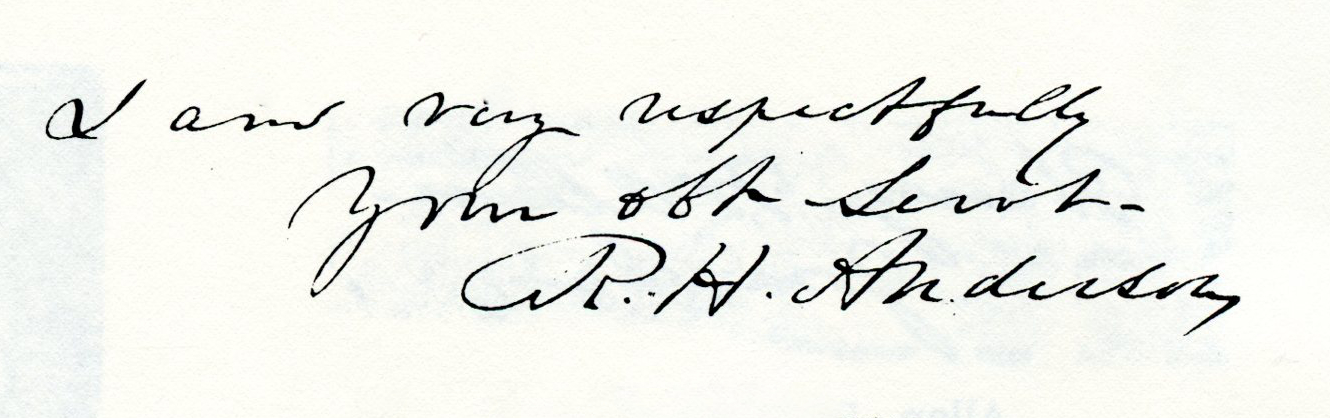 I am very respectfully
Your obt Servt-
R. H. Anderson